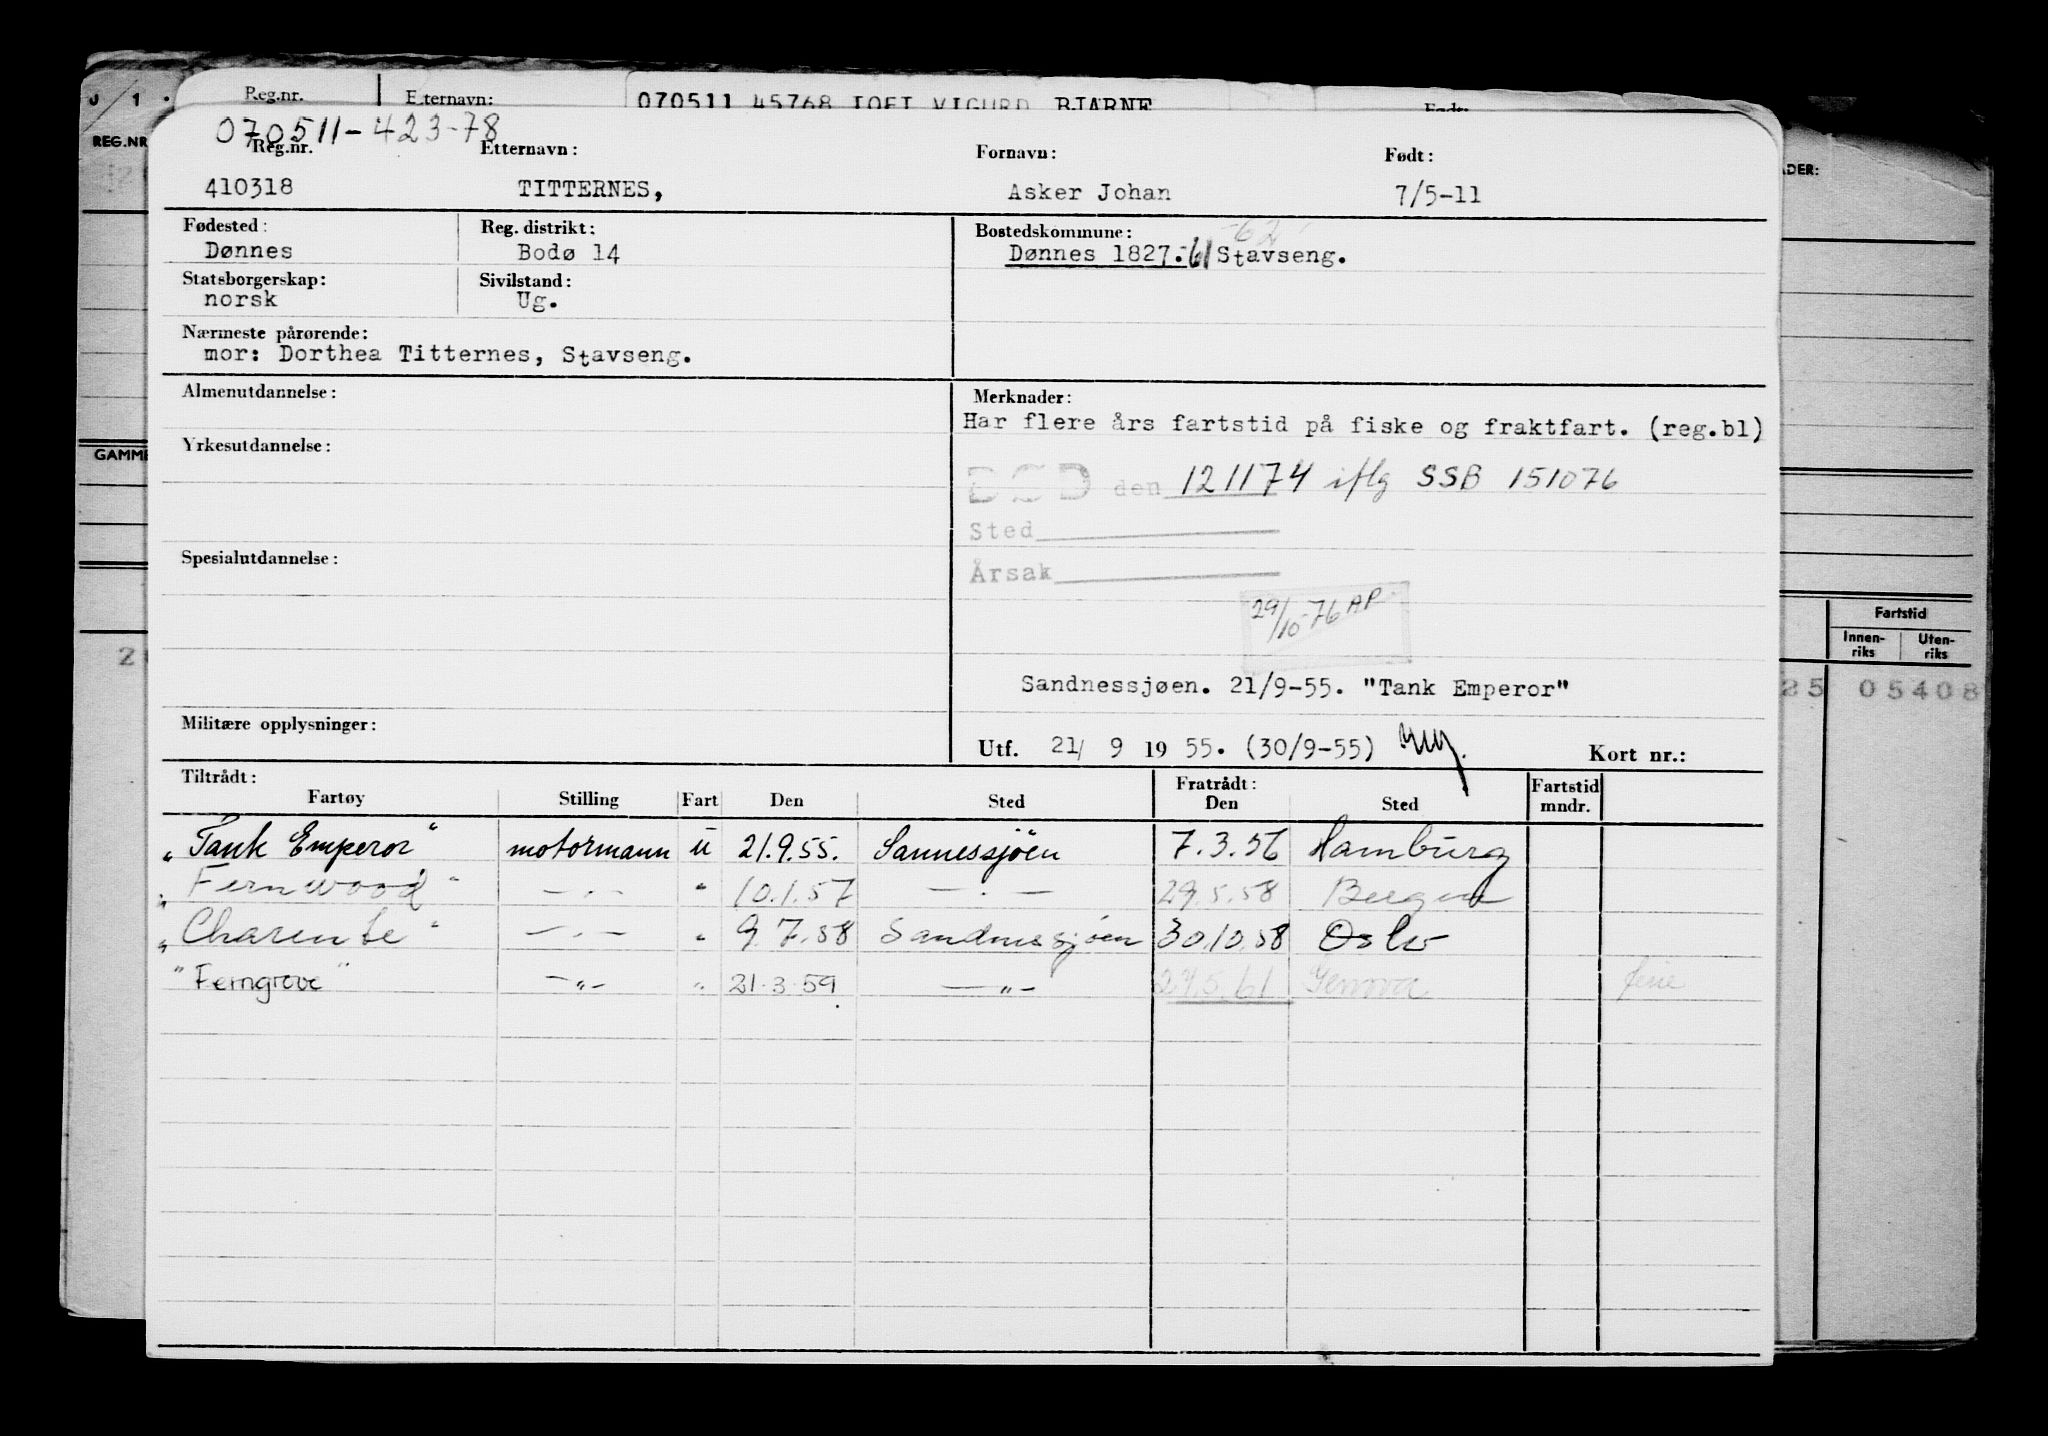 Reg.nr. Etternavn: 070511 45768 TOFT VIGURD BJARNE Født:
REG.NR
070511-423-78
Reg.nr. Etternavn: Fornavn: Født:
410318 TITTERNES, Asker Johan 7/5-11
Fødested: Reg. distrikt: Bostedskommune: -62
Dønnes Bodø 14 Dønnes 1827.-61 Stavseng.
Statsborgerskap: Sivilstand:
norsk Ug.
Nærmeste pårørende:
mor: Dorthea Titternes, Stavseng.
Almenutdannelse: Merknader:
Har flere års fartstid på fiske og fraktfart. (reg.bl)
Yrkesutdannelse:
DØD den 121174 iflg SSB 151076
Sted
Spesialutdannelse:
Årsak
29/10-76 AP
Sandnessjøen. 21/9-55. "Tank Emperor"
Militære opplysninger:
Utf. 21/ 9 19 55. (30/9-55) Kort nr.:
Tiltrådt: Fratrådt: Fartstid
Fartøy Stilling Fart Den Sted Den Sted mndr.
"Tank Emperor" motormann u 21.9.55. Sannessjöen 7.3.56 Hamburg
"Fernwood" —"— " 10.1.57 —"— 29.5.58 Bergen
"Charente" —"— " 9.7.58 Sandnessjöen 30.10.58 Oslo
"Ferngrove" —"— " 21.3.59 —"— 27.5.61 Genova ferie
GAMME
Fartstid
Innen-riks Uten-riks
25 05408